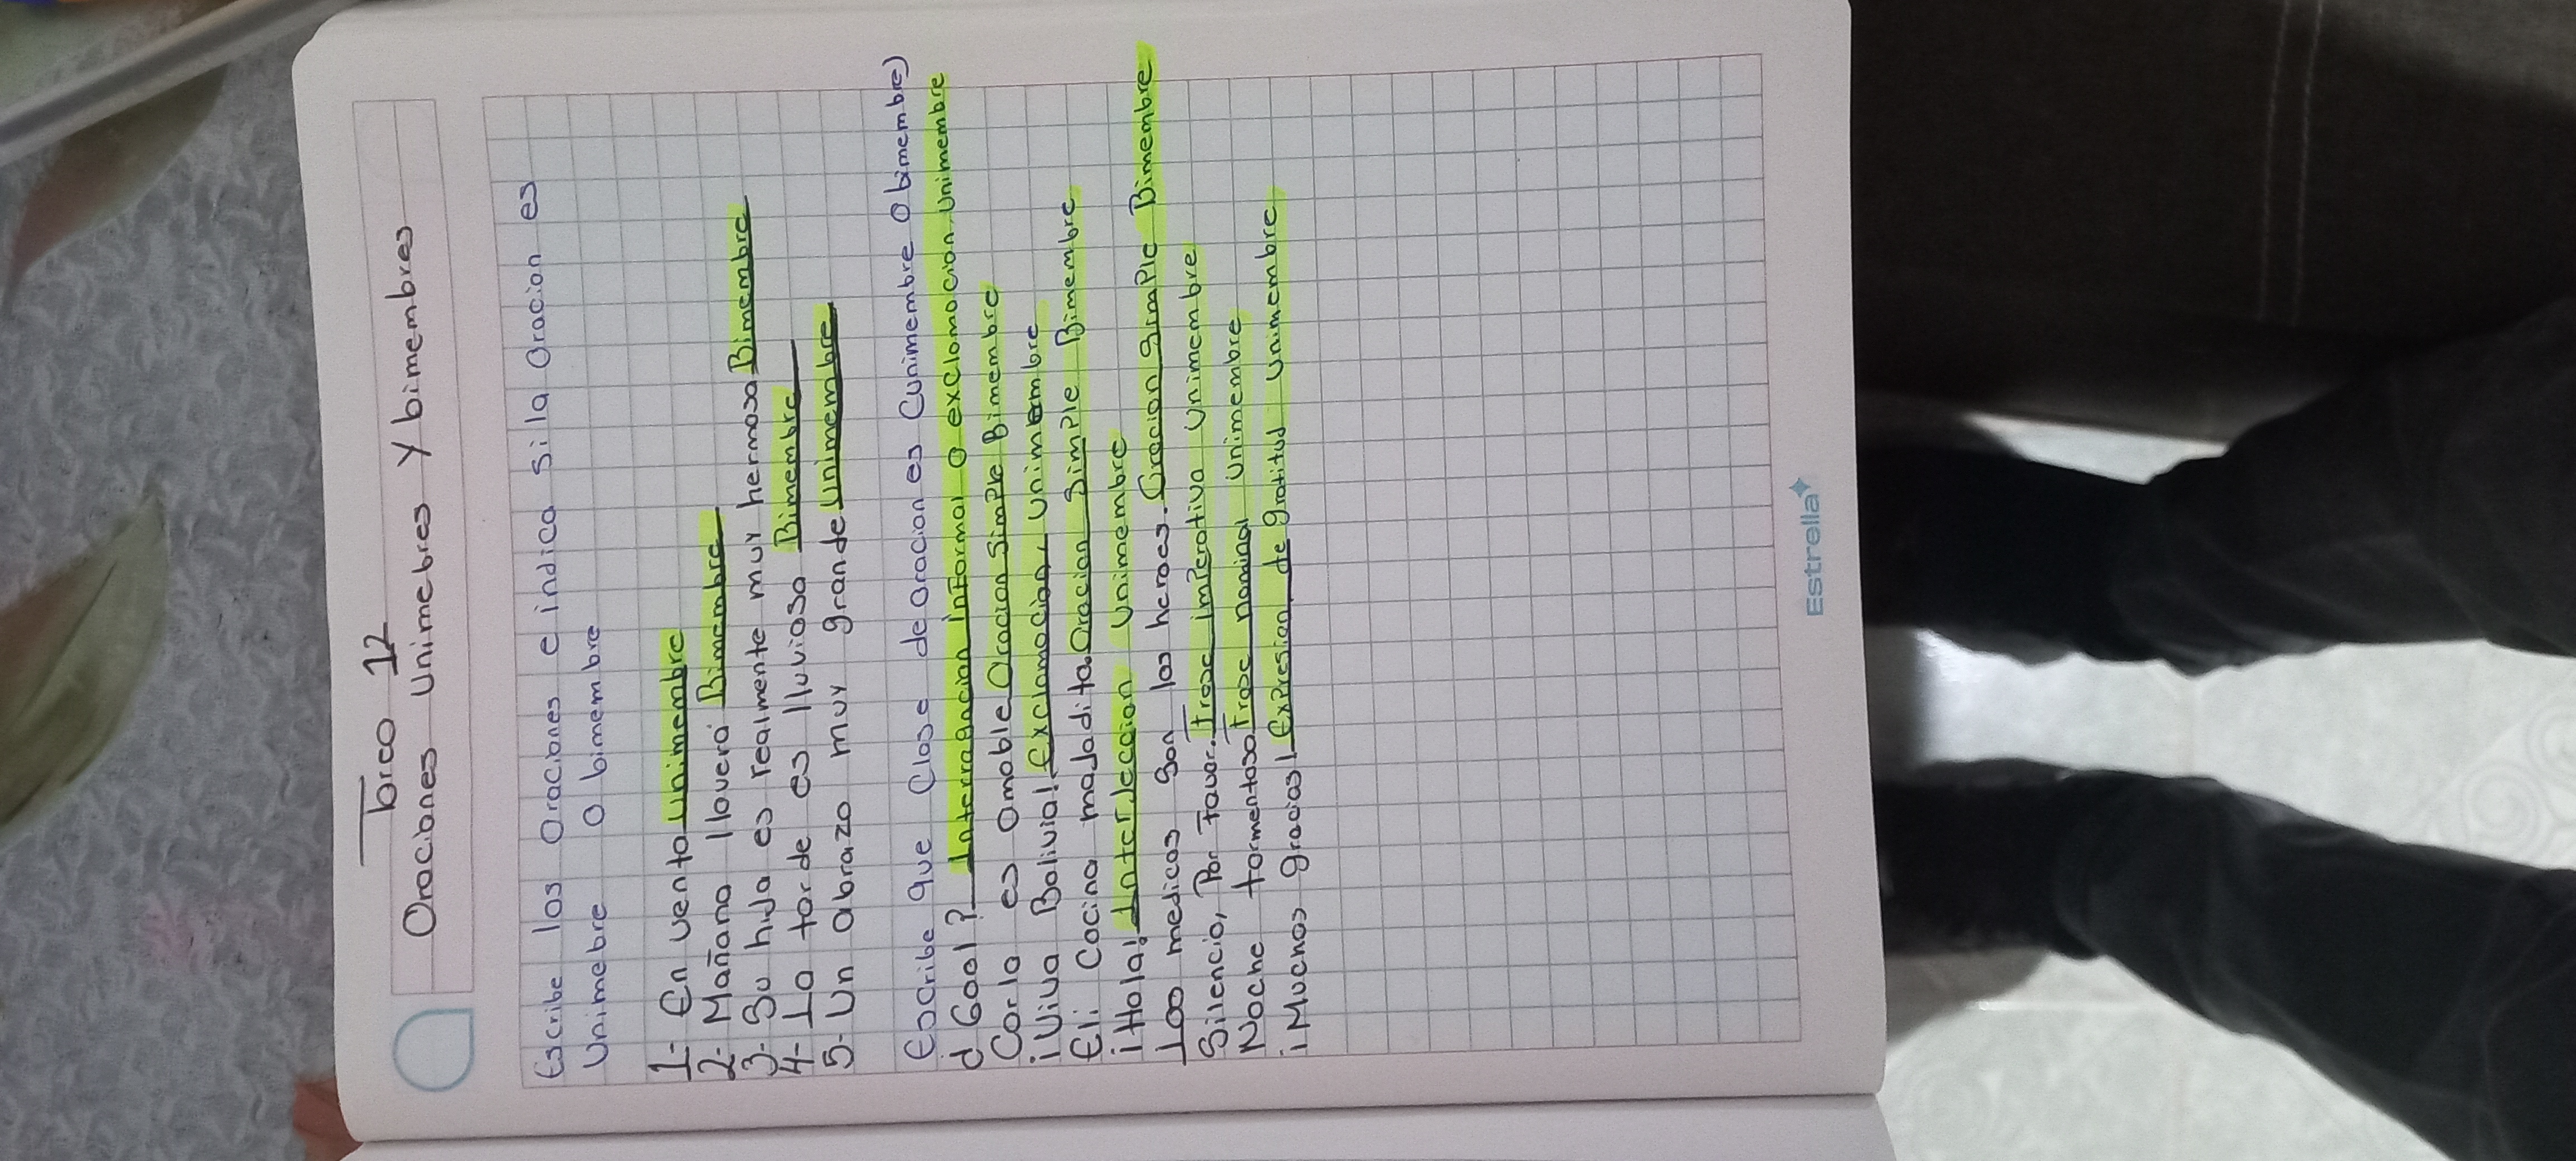 Tarea 12
Oraciones Unimebres Y bimembres
Escribe las Oraciones e indica si la Oracion es
Unimebre O bimembre
1- En venta Unimembre
2- Mañana lloverá Bimembre
3- Su hija es realmente muy hermosa Bimembre
4- La tarde es lluviosa Bimembre
5- Un abrazo muy grande Unimembre
Escribe que Clase de oracion es (unimembre O bimembre)
¿Gool? Interragacion informal O exclamacion, Unimembre
Carla es amable Oracion Simple Bimembre
¡Viva Bolivia! Exclamacion, Unimembre
Eli Cocina majadita. Oracion Simple Bimembre
¡Hola! Interjeccion Unimembre
Loo medicos Son los heroes. Oracion Simple Bimembre
Silencio, Por Favor. Frase imperativa Unimembre
Noche tormentosa Frase nominal Unimembre
¡Muchas gracias! Expresion de gratitud Unimembre
Estrella